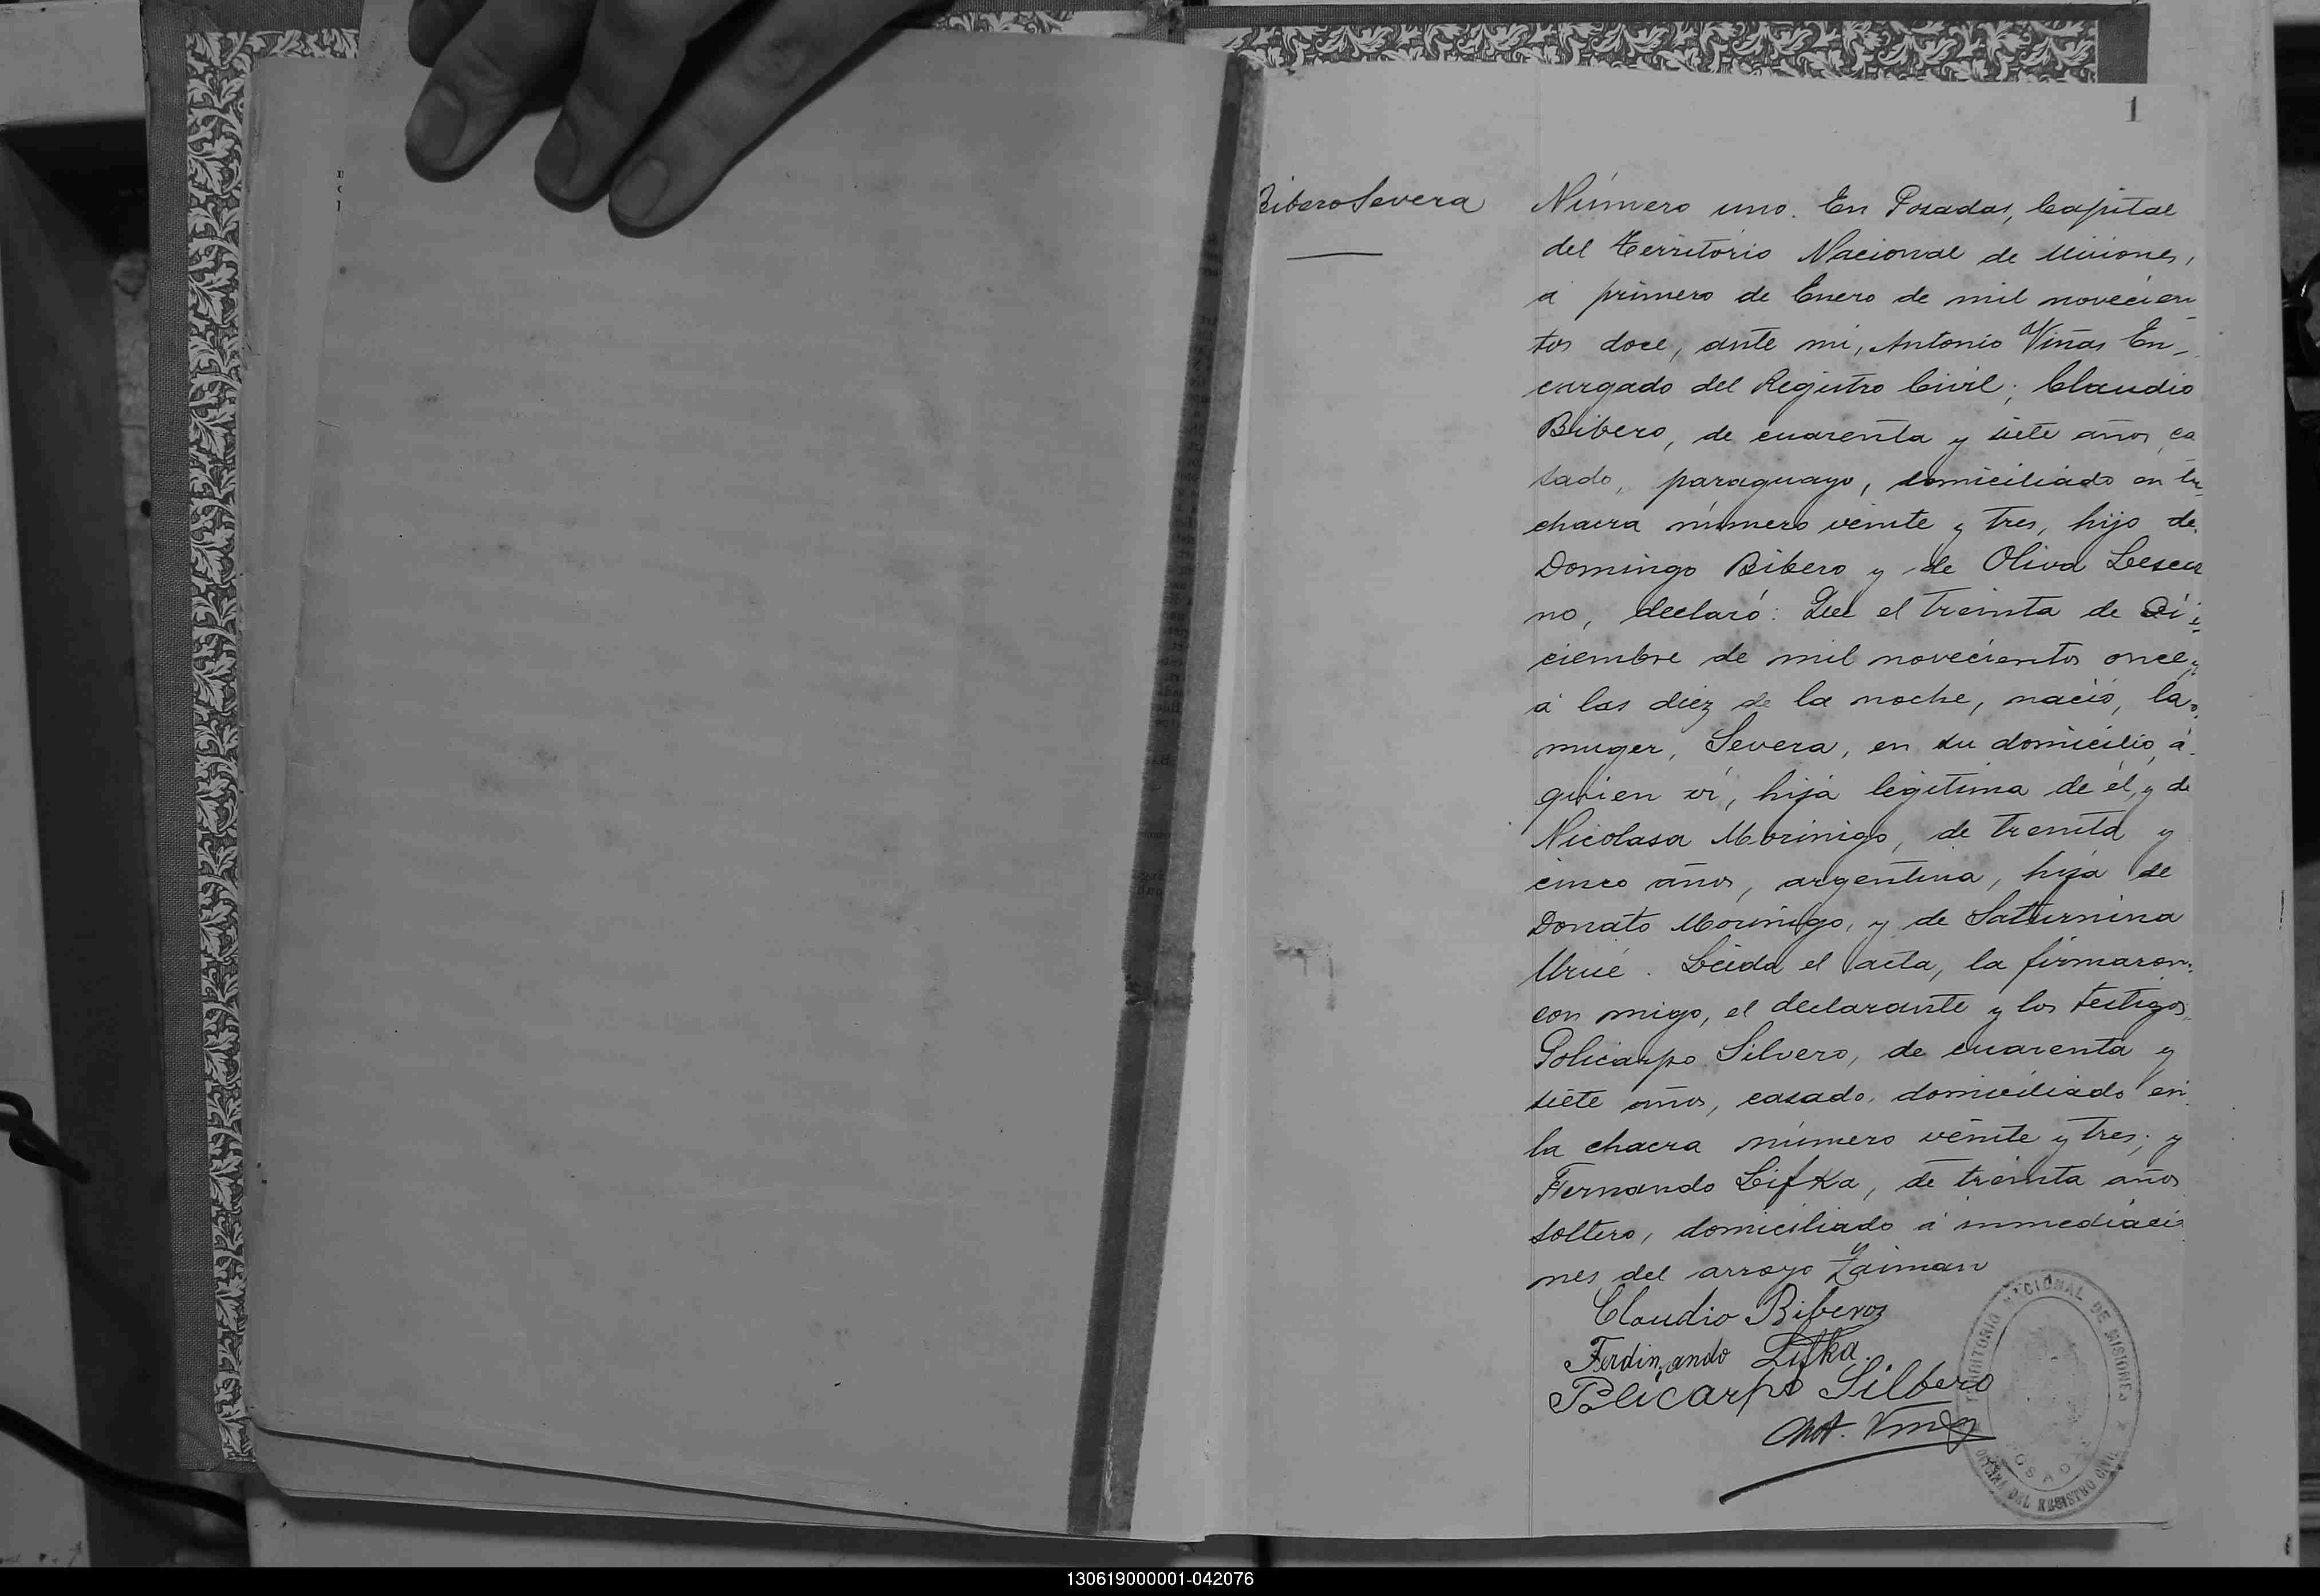 1
Ribero Severa
Número uno. En Posadas, Capital
del Territorio Nacional de Misiones,
á primero de Enero de mil novecien
tos doce, ante mi, Antonio Viñas En-
cargado del Registro Civil; Claudio
Ribero, de cuarenta y siete años, ca
sado, paraguayo, domiciliado en la
chacra número veinte y tres, hijo de
Domingo Ribero y de Oliva Lescu
no, declaró: Que el treinta de Di
ciembre de mil novecientos once,
á las diez de la noche, nació, la
muger, Severa, en su domicilio, á
quien ví, hija legitima de él, y de
Nicolasa Morinigo, de treinta y
cinco años, argentina, hija de
Donato Morinigo, y de Saturnina
Urué. Leida el acta, la firmaron
con migo, el declarante y los testigos
Policarpo Silvero, de cuarenta y
siete años, casado, domiciliado en
la chacra número veinte y tres; y
Fernando Lifka, de treinta años
soltero, domiciliado á inmediacio
nes del arroyo Zaiman
Claudio Riberos
Ferdinando Lifka.
Policarpo Silbero
Ant. Viñas
TERRITORIO NACIONAL DE MISIONES
POSADAS
OFICINA DEL REGISTRO CIVIL
130619000001-042076